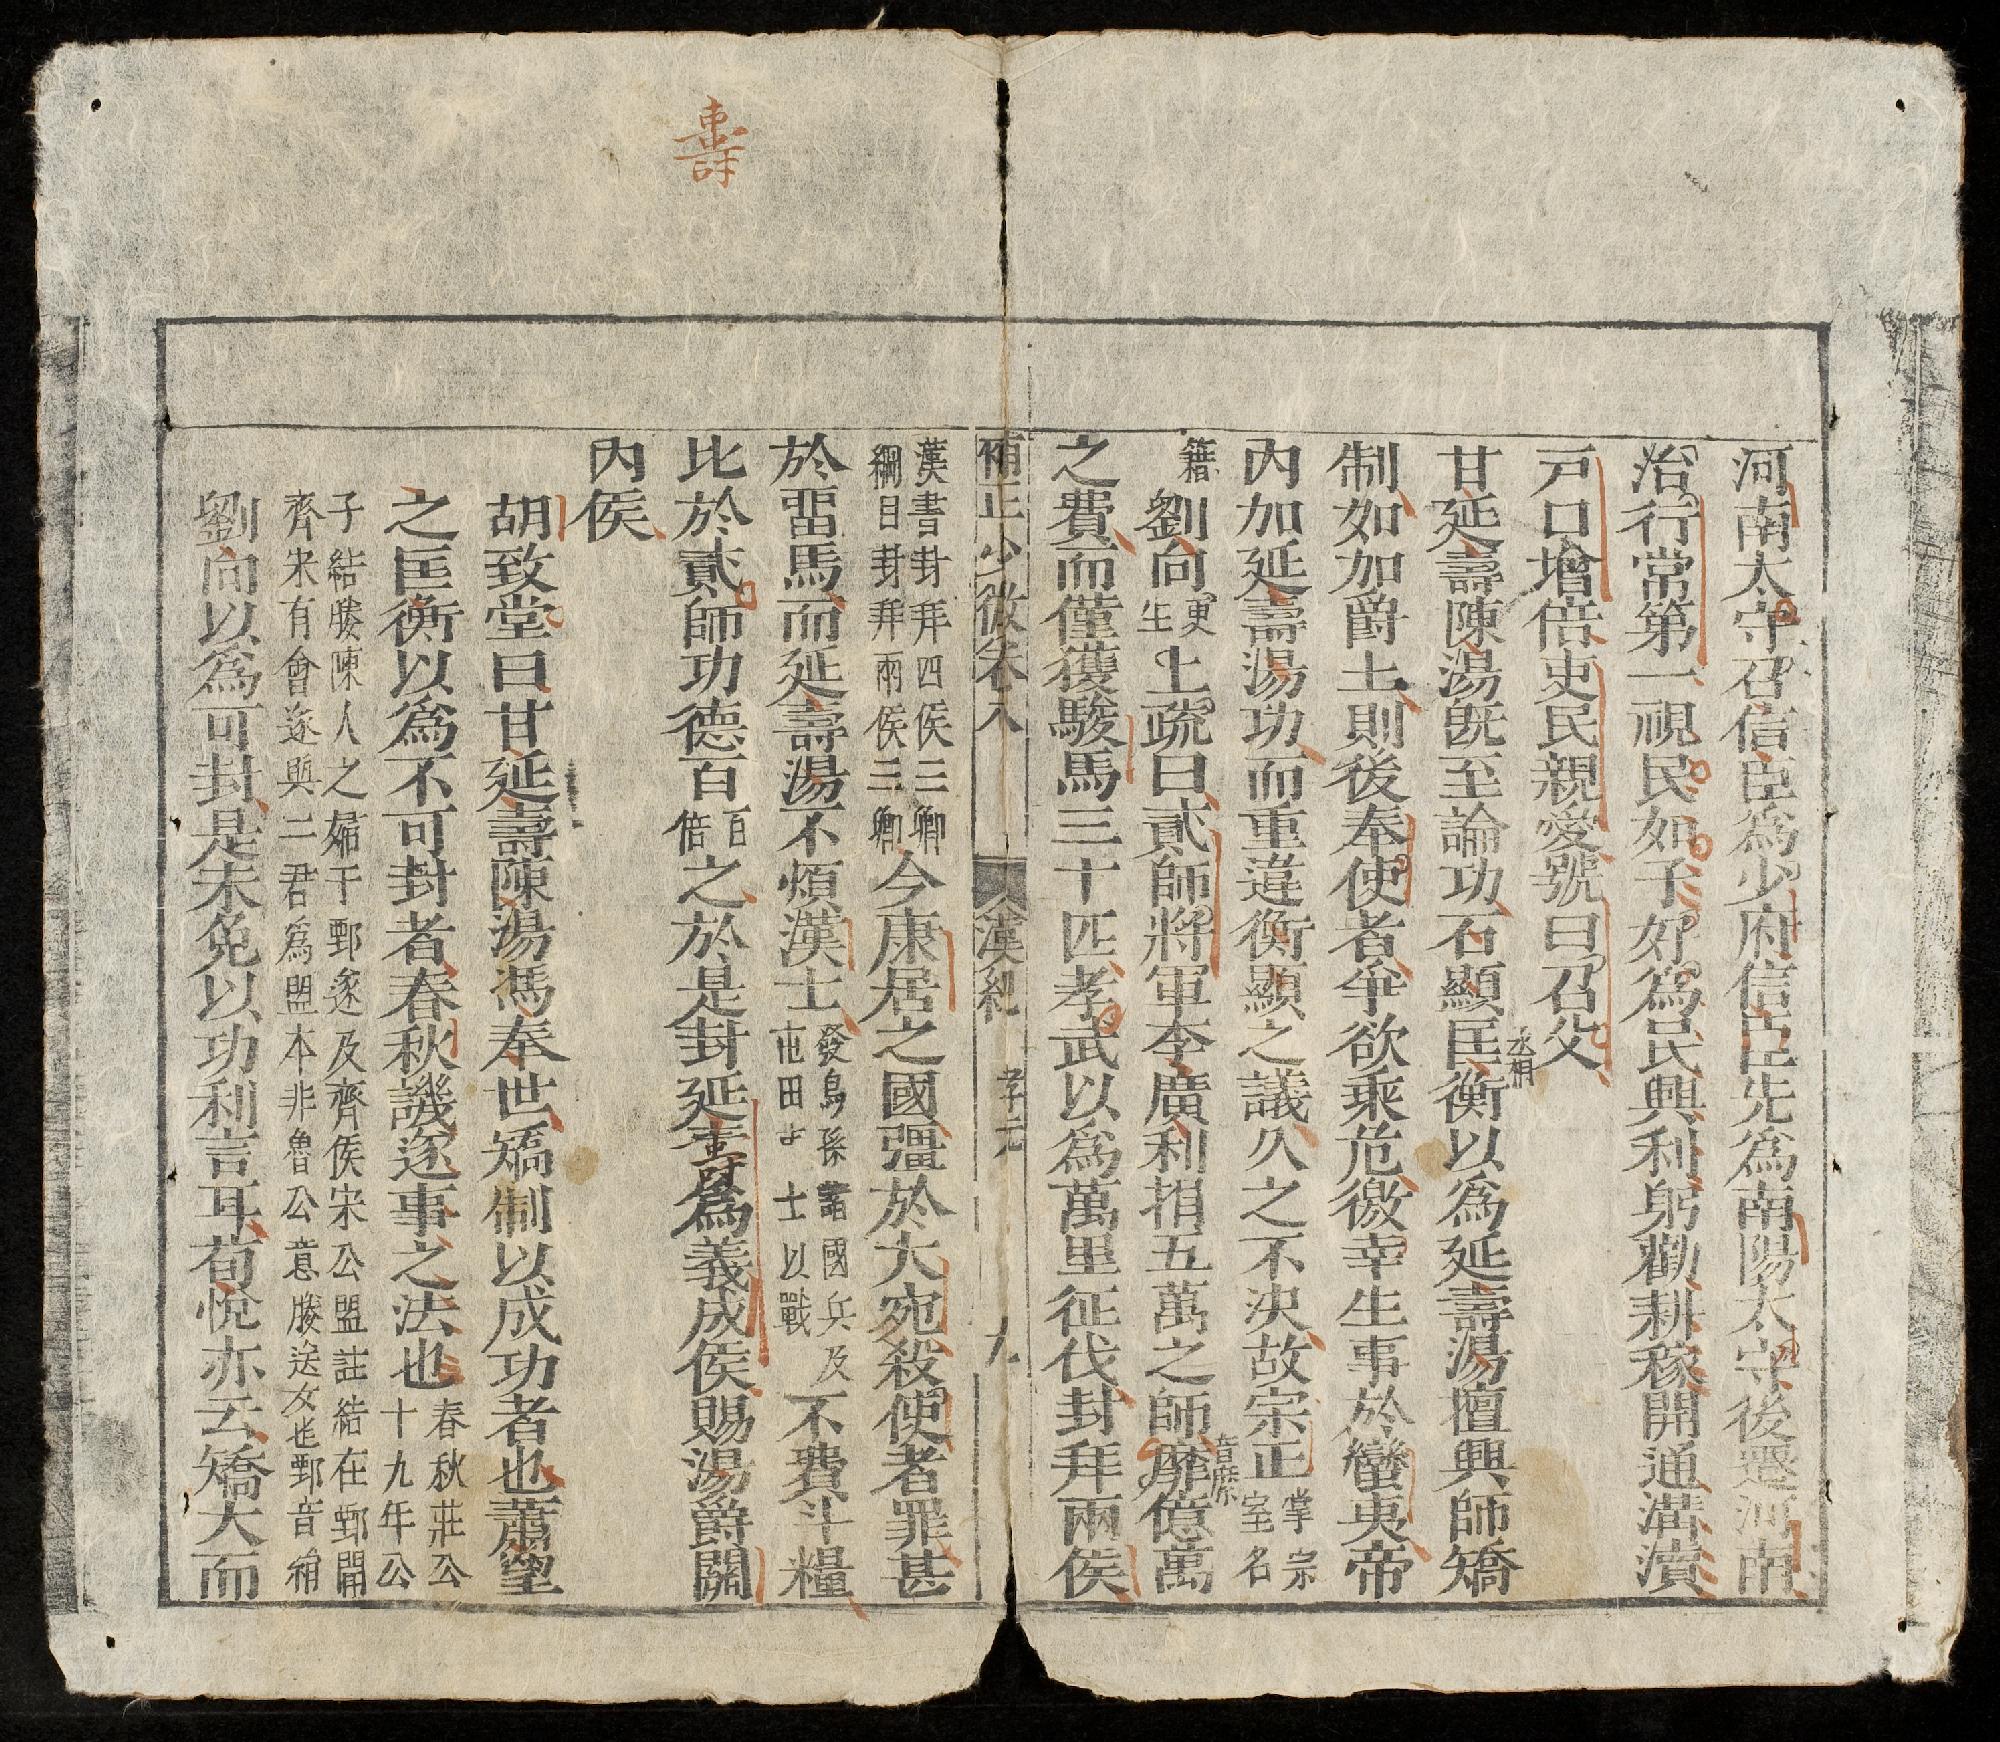 壽
河南太守召信臣為少府信臣先為南陽太守後遷河南
治行常第一視民如子好為民興利躬勸耕稼開通溝瀆
戸口增倍吏民親愛號曰召父
甘延壽陳湯旣至論功石顯匡衡以為延壽湯擅興師矯
丞相
制如加爵土則後奉使者爭欲乘危徼幸生事於蠻夷帝
內加延壽湯功而重違衡顯之議久之不決故宗正掌宗室名
籍劉向更生上疏曰貳師將軍李廣利捐五萬之師靡億萬
音糜
之費而僅獲駿馬三十匹孝武以為萬里征伐封拜兩侯
補正少微卷八 漢紀 孝元 九
漢書封拜四侯三卿綱目封拜兩侯三卿今康居之國彊於大宛殺使者罪甚
於畱馬而延壽湯不煩漢士發烏孫諸國兵及屯田士以戰不費斗糧
比於貳師功德百百倍之於是封延壽為義成侯賜湯爵關
內侯
胡致堂曰甘延壽陳湯馮奉世矯制以成功者也蕭望
之匡衡以為不可封者春秋譏遂事之法也春秋莊公十九年公
子結媵陳人之婦于鄄遂及齊侯宋公盟註結在鄄聞
齊宋有會遂與二君為盟本非魯公意媵送女也鄄音絹
劉向以為可封是未免以功利言耳荀悅亦云矯大而